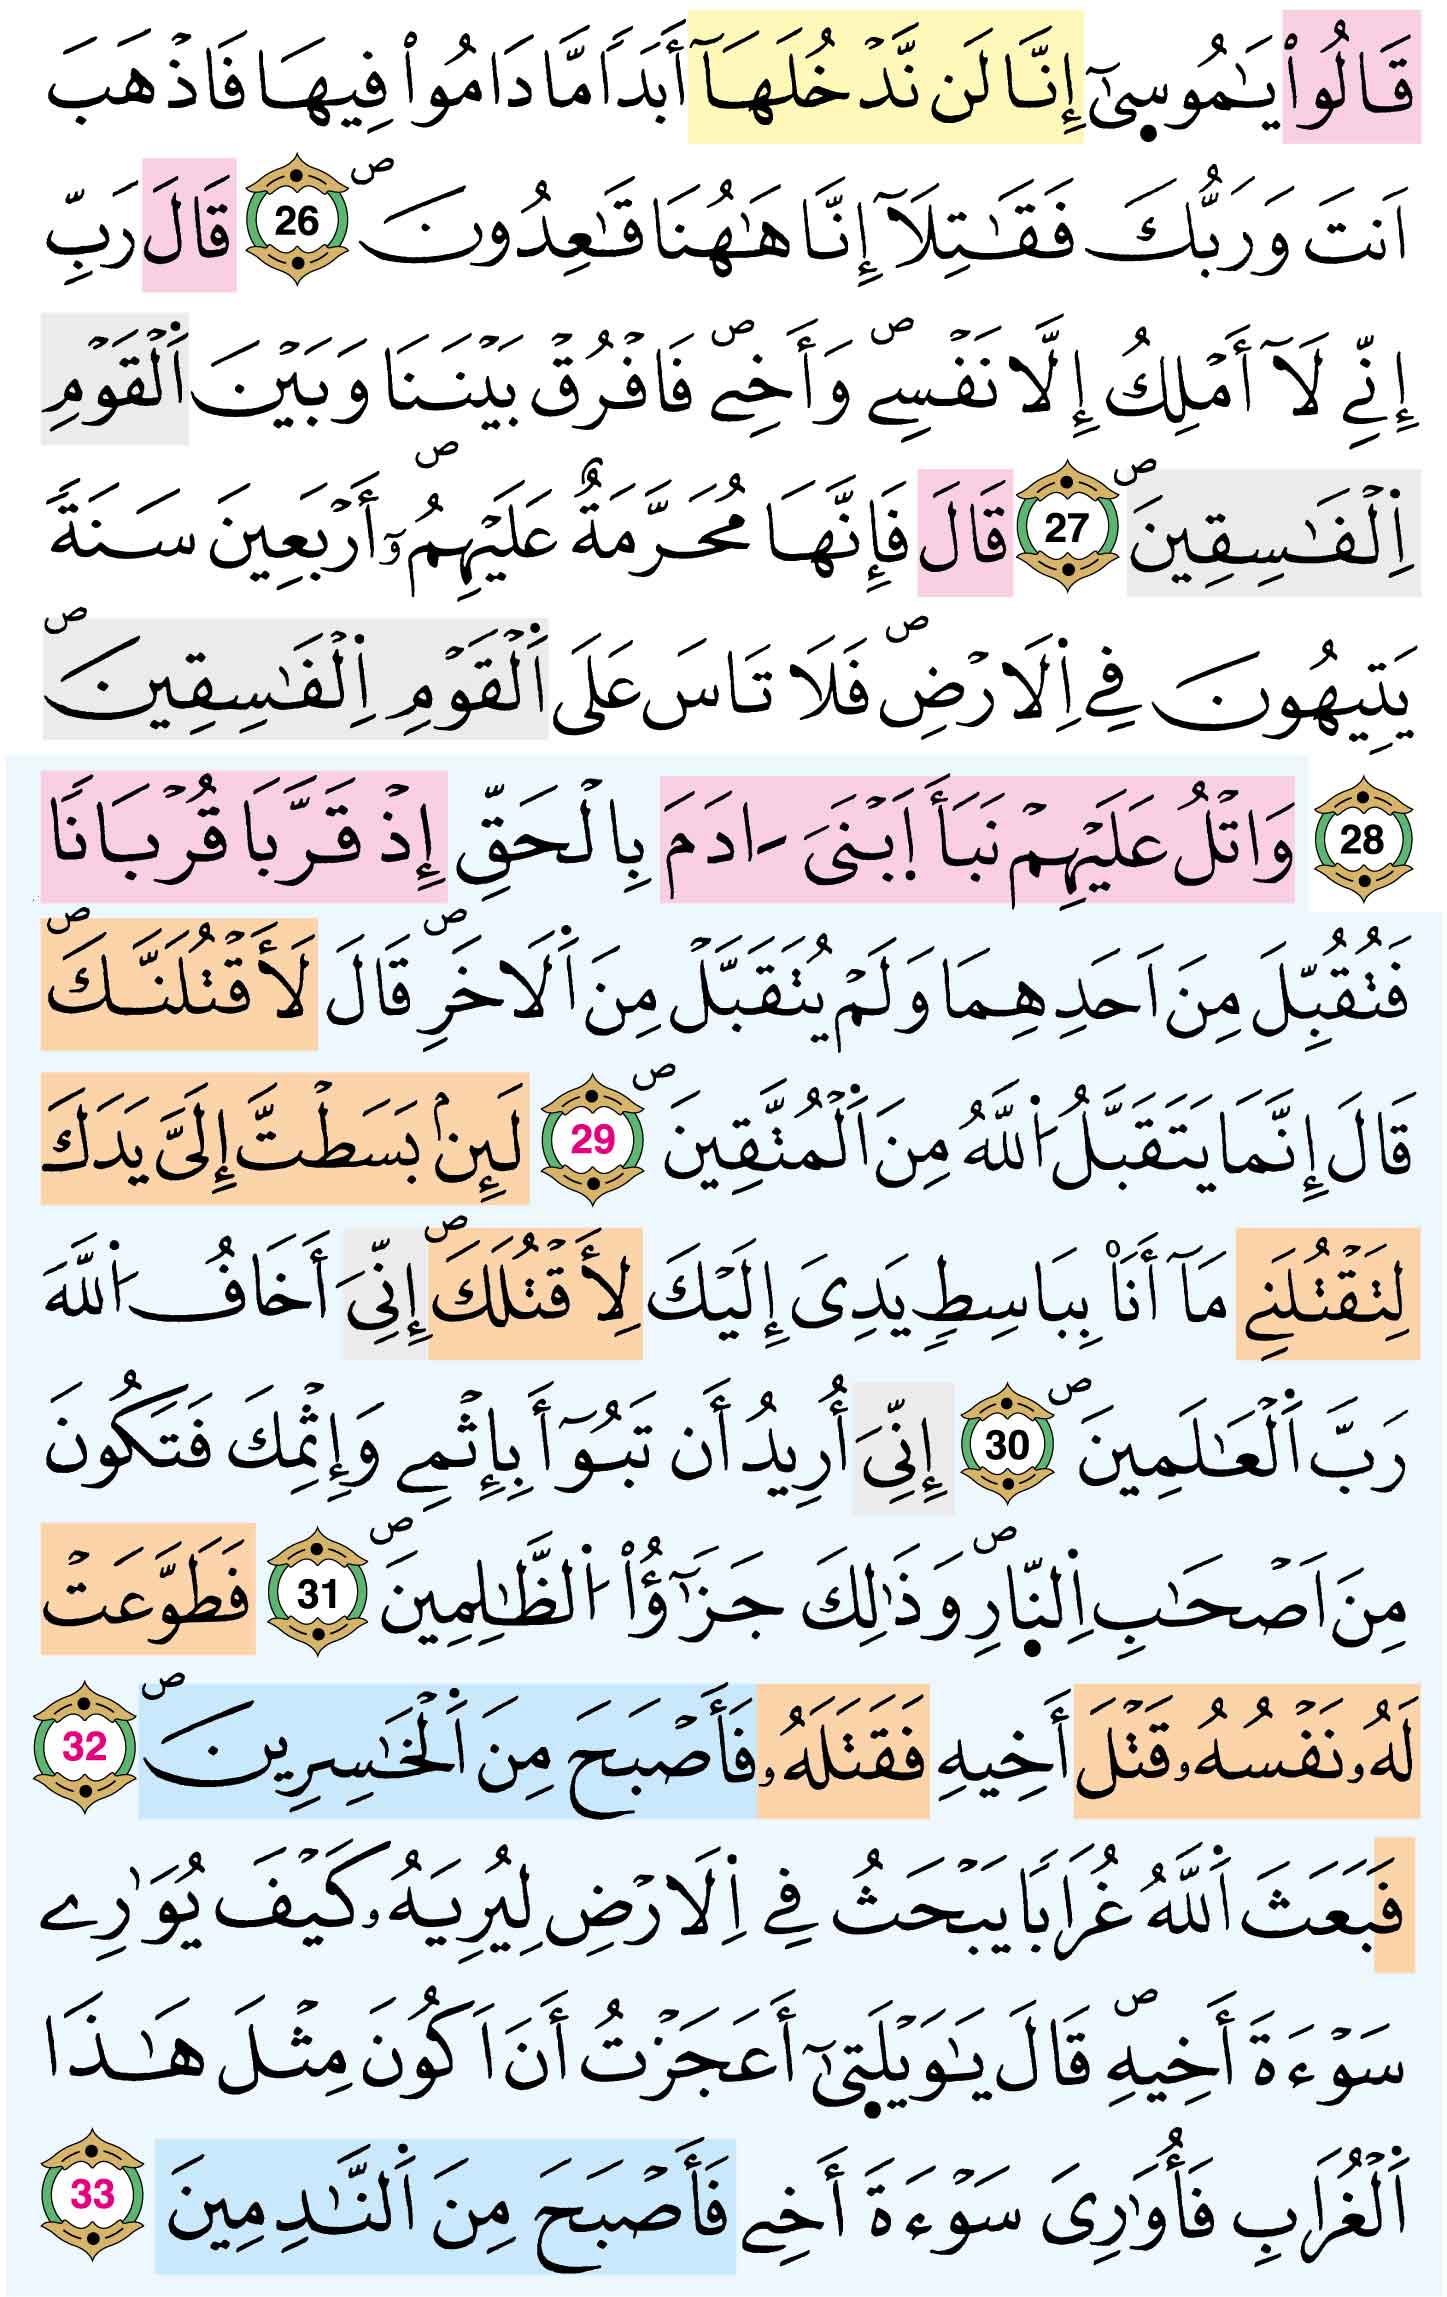 قَالُواْ يَٰمُوس۪ىٰٓ إِنَّا لَن نَّدْخُلَهَآ أَبَداٗ مَّا دَامُواْ فِيهَا فَاذْهَبَ
اَنتَ وَرَبُّكَ فَقَٰتِلَآ إِنَّا هَٰهُنَا قَٰعِدُونَۖ 26 قَالَ رَبِّ
إِنِّے لَآ أَمْلِكُ إِلَّا نَفْسِےۖ وَأَخِےۖ فَافْرُقْ بَيْنَنَا وَبَيْنَ اَ۬لْقَوْمِ
اِ۬لْفَٰسِقِينَۖ 27 قَالَ فَإِنَّهَا مُحَرَّمَةٌ عَلَيْهِمُۥٓۖ أَرْبَعِينَ سَنَةٗ
يَتِيهُونَ فِے اِ۬لَارْضِۖ فَلَا تَاسَ عَلَى اَ۬لْقَوْمِ اِ۬لْفَٰسِقِينَۖ
28 وَاتْلُ عَلَيْهِمْ نَبَأَ اَ۪بْنَىَ ءَادَمَ بِالْحَقِّ إِذْ قَرَّبَا قُرْبَاناٗ
فَتُقُبِّلَ مِنَ اَحَدِهِمَا وَلَمْ يُتَقَبَّلْ مِنَ اَ۬لَاخَرِۖ قَالَ لَأَقْتُلَنَّكَۖ
قَالَ إِنَّمَا يَتَقَبَّلُ اُ۬للَّهُ مِنَ اَ۬لْمُتَّقِينَۖ 29 لَئِنۢ بَسَطْتَّ إِلَىَّ يَدَكَ
لِتَقْتُلَنِے مَآ أَنَا۠ بِبَاسِطٖ يَدِىَ إِلَيْكَ لِأَقْتُلَكَۖ إِنِّىَ أَخَافُ اُ۬للَّهَ
رَبَّ اَ۬لْعَٰلَمِينَۖ 30 إِنِّىَ أُرِيدُ أَن تَبُوٓأَ بِإِثْمِے وَإِثْمِكَ فَتَكُونَ
مِنَ اَصْحَٰبِ اِ۬لنّ۪ارِۖ وَذَٰلِكَ جَزَٰٓؤُاْ اُ۬لظَّٰلِمِينَۖ 31 فَطَوَّعَتْ
لَهُۥ نَفْسُهُۥ قَتْلَ أَخِيهِ فَقَتَلَهُۥ فَأَصْبَحَ مِنَ اَ۬لْخَٰسِرِينَۖ 32
فَبَعَثَ اَ۬للَّهُ غُرَاباٗ يَبْحَثُ فِے اِ۬لَارْضِ لِيُرِيَهُۥ كَيْفَ يُوَٰرِے
سَوْءَةَ أَخِيهِۖ قَالَ يَٰوَيْلَت۪ىٰٓ أَعَجَزْتُ أَنَ اَكُونَ مِثْلَ هَٰذَا
اَ۬لْغُرَابِ فَأُوَٰرِىَ سَوْءَةَ أَخِے فَأَصْبَحَ مِنَ اَ۬لنَّٰدِمِينَ 33